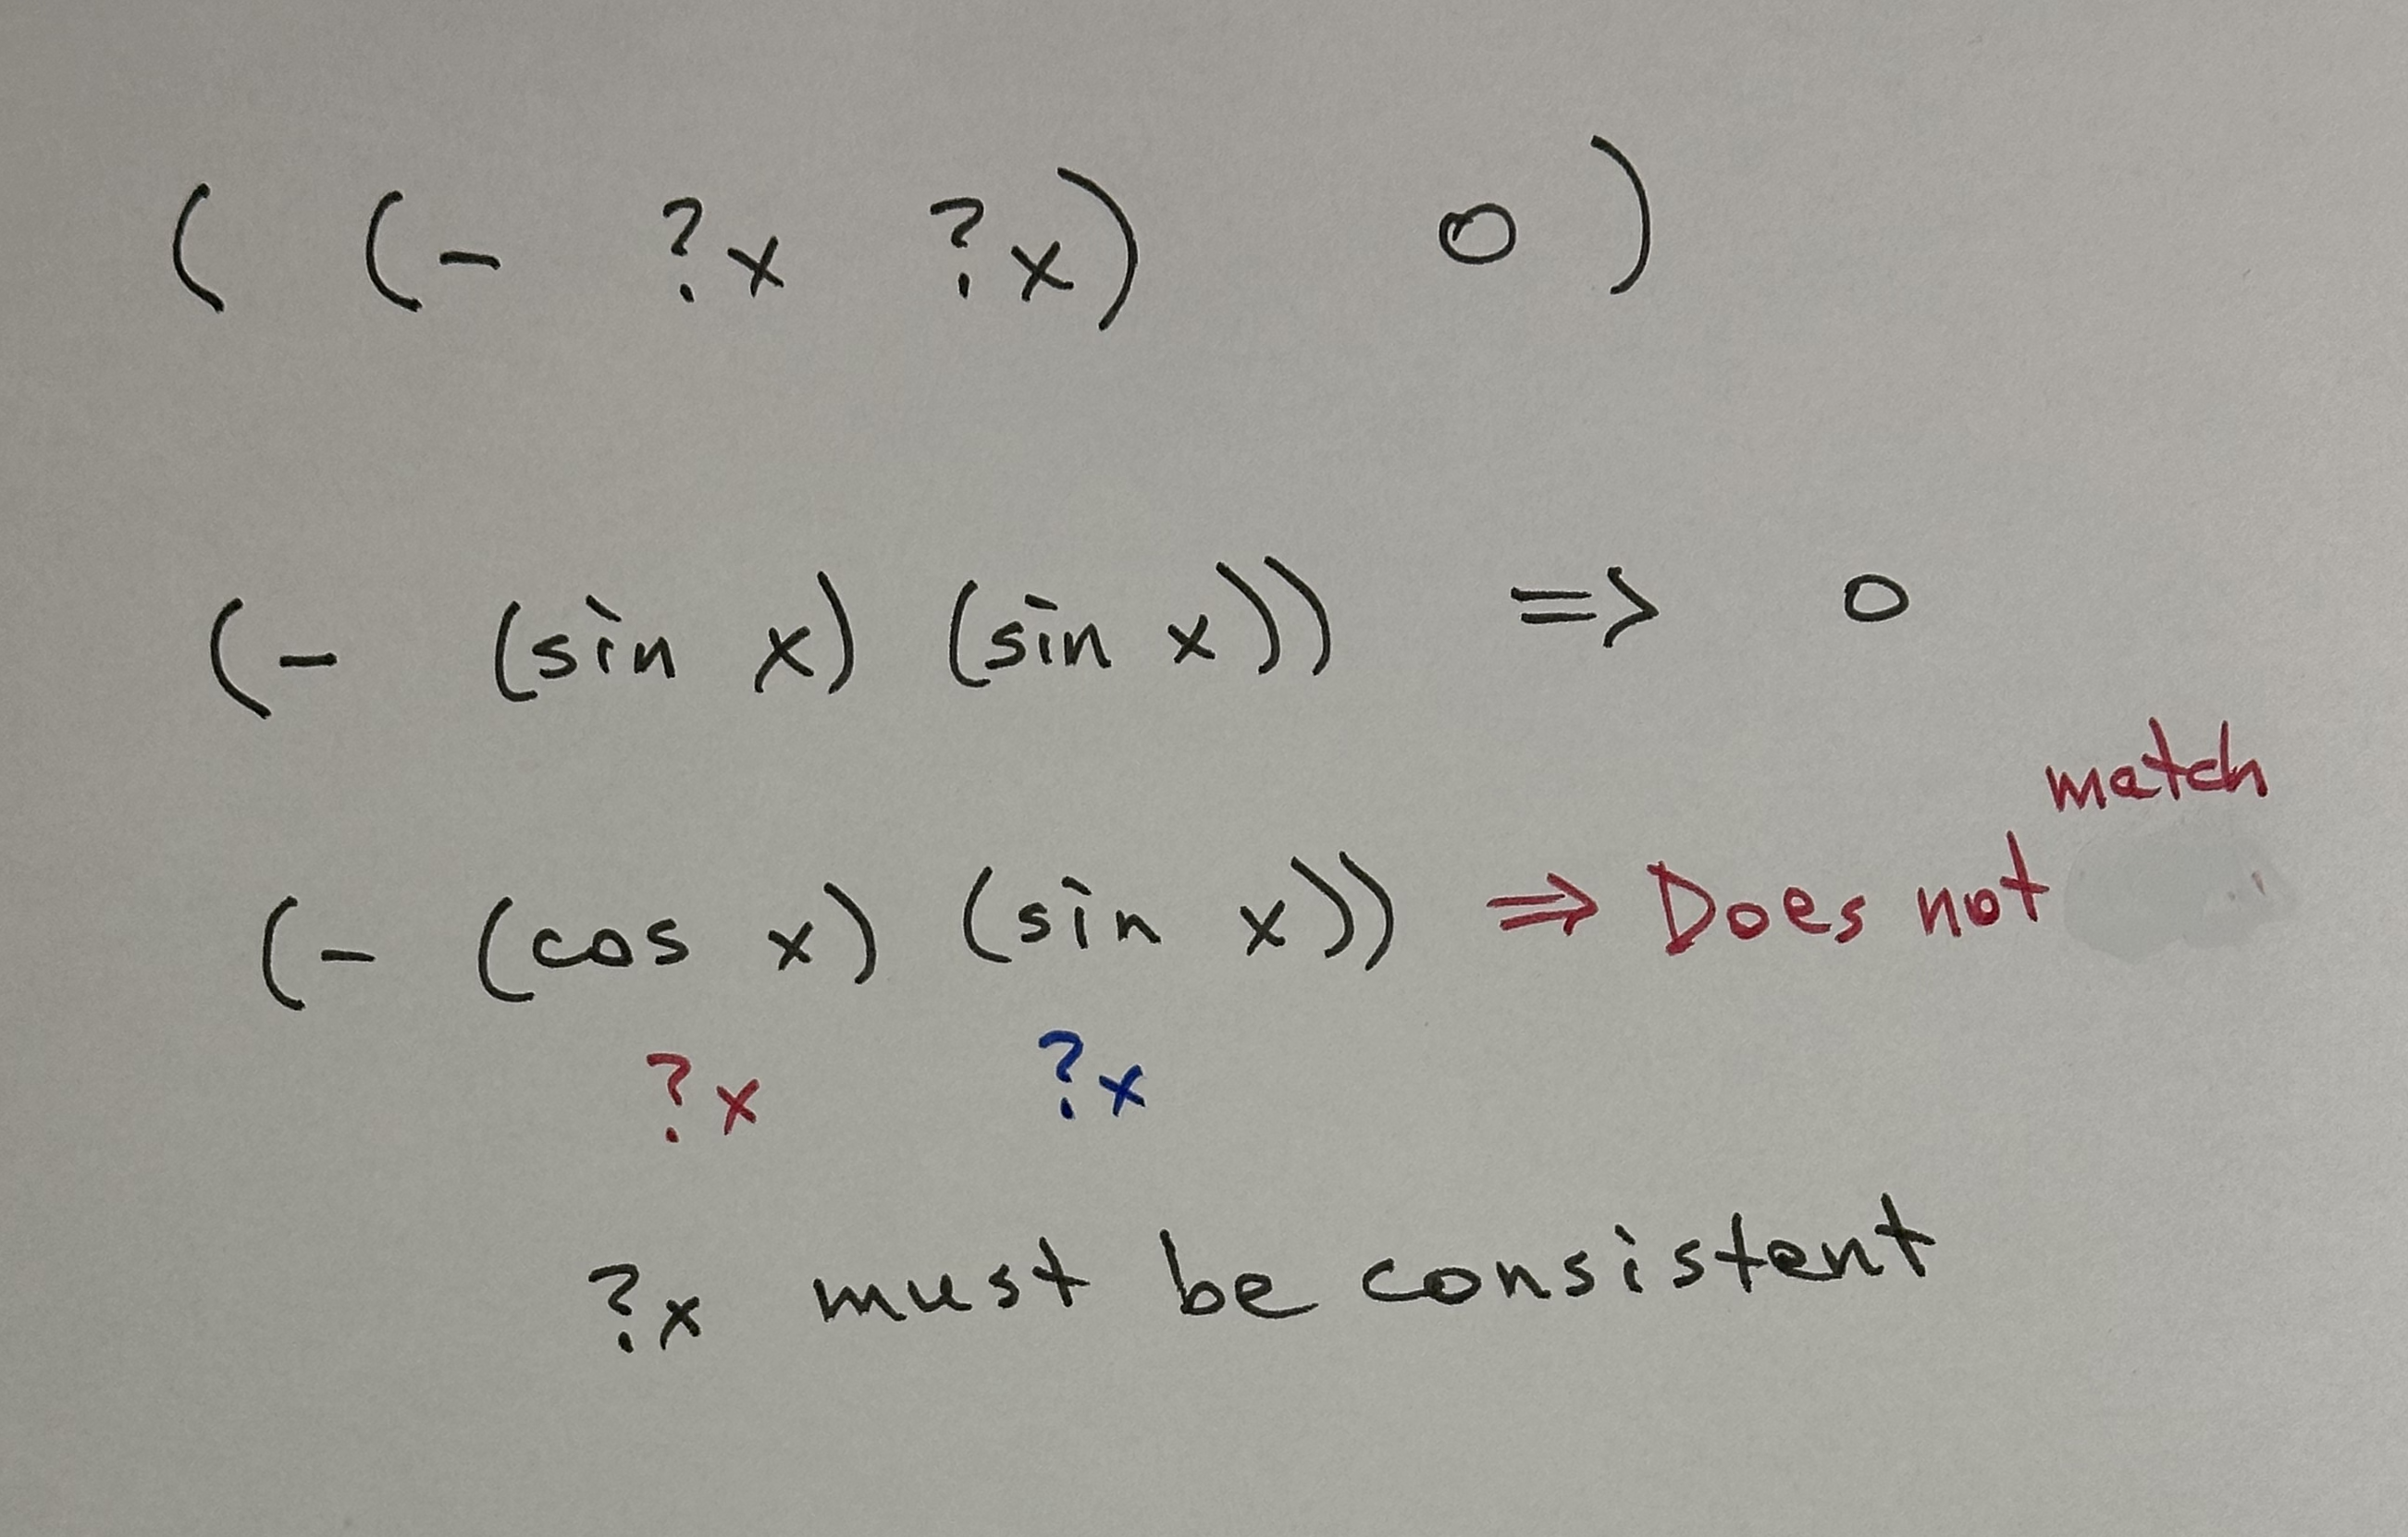 ( (- ?x ?x) 0 )
(- (sin x) (sin x)) => 0
match
(- (cos x) (sin x)) => Does not
?x ?x
?x must be consistent